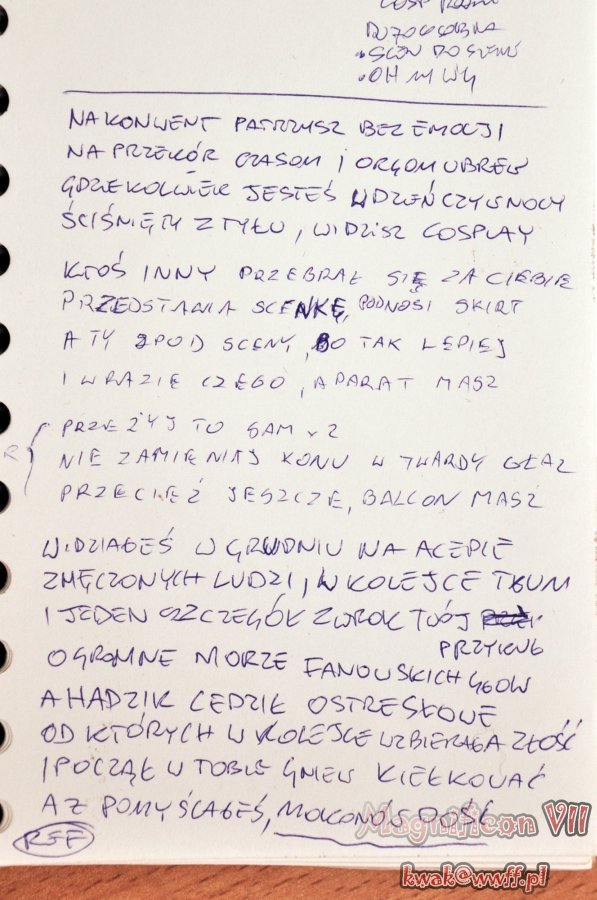 COSP
• SCEN DO SCENY
• OH MY
NA KONWENT PATRZYSZ BEZ EMOCJI
NA PRZEKÓR CZASOM I ORGOM WBREW
GDZIEKOLWIEK JESTEŚ W DZIEŃ CZY W NOCY
ŚCIŚNIĘTY Z TYŁU, WIDZISZ COSPLAY
KTOŚ INNY PRZEBRAŁ SIĘ ZA CIEBIE
PRZEDSTAWIA SCENKĘ, PODNOSI SKIRT
A TY SPOD SCENY, BO TAK LEPIEJ
I W RAZIE CZEGO, APARAT MASZ
R
PRZEŻYJ TO SAM x2
NIE ZAMIENIAJ KONU W TWARDY GŁAZ
PRZECIEŻ JESZCZE, BALCON MASZ
WIDZIAŁEŚ W GRUDNIU NA ACEPIE
ZMĘCZONYCH LUDZI, W KOLEJCE TŁUM
I JEDEN SZCZEGÓŁ ZWROK TWÓJ
PRZYKUŁ
OGROMNE MORZE FANOWSKICH GŁOW
A HADZIK CEDZIŁ OSTRE SŁOWE
OD KTÓRYCH W KOLEJCE WZBIERAŁA ZŁOŚĆ
I POCZĄŁ W TOBIE GNIEW KIEŁKOWAĆ
AZ POMYŚLAŁEŚ, MOKONÓW DOŚĆ
REF
Magnificon VII
kwak@wwff.pl